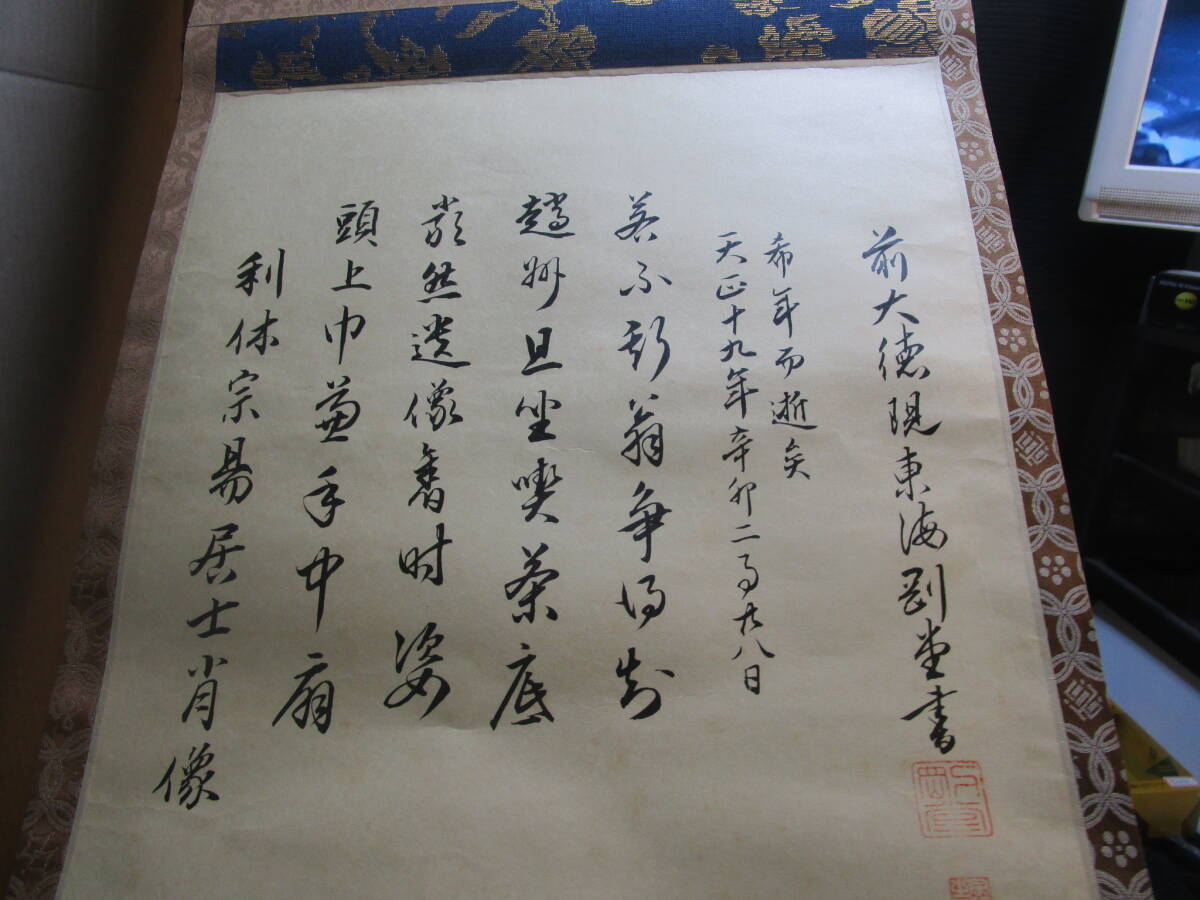 利休宗易居士肖像
頭上巾兼手中扇
儼然遺像舊時姿
趙州且坐喫茶底
若不斯翁争得知
天正十九年辛卯二月廿八日
希年而逝矣
前大徳現東海剛堂書